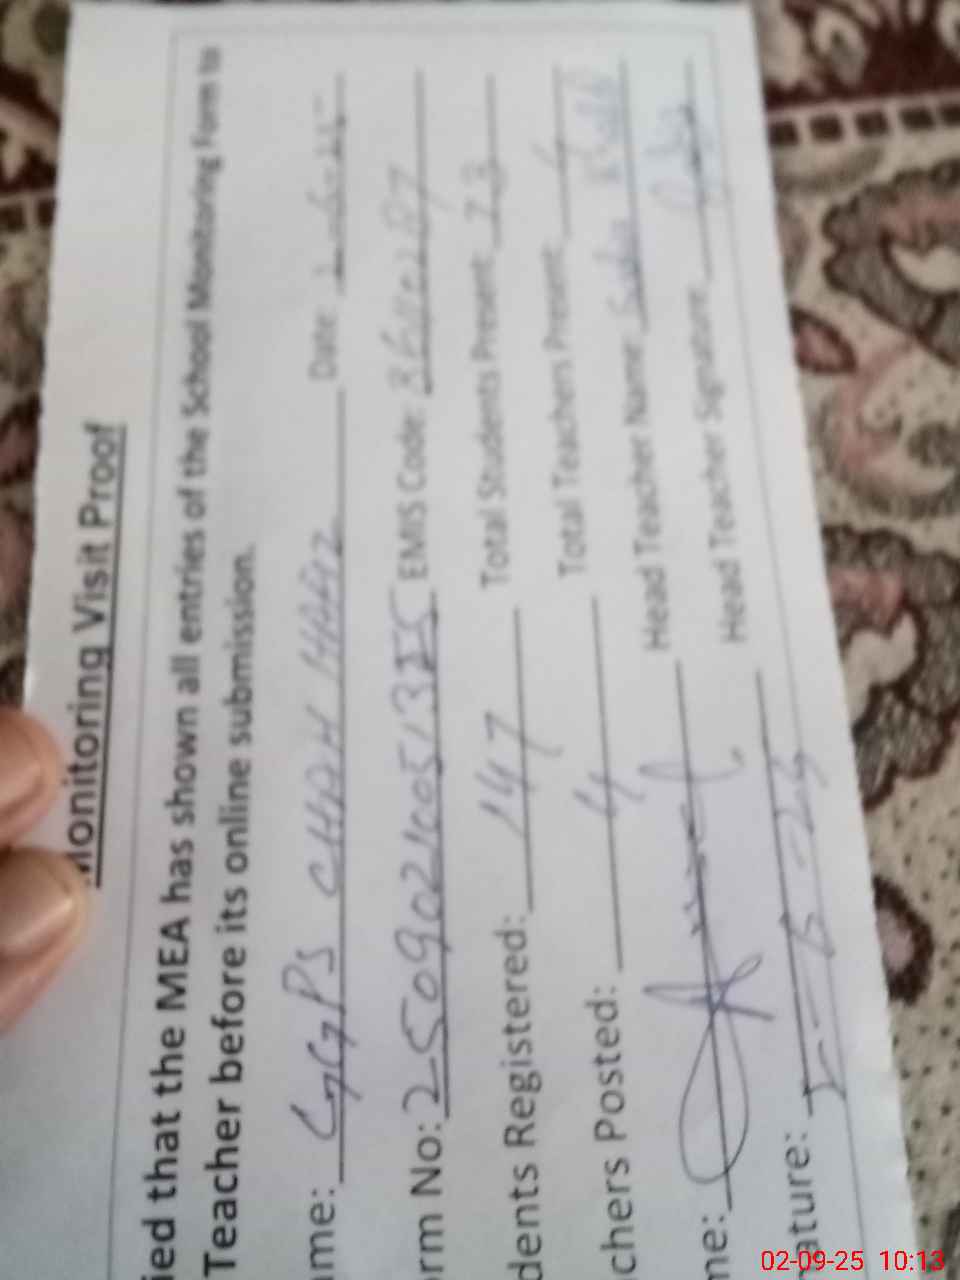 Monitoring Visit Proof
ied that the MEA has shown all entries of the School Monitoring Form to
Teacher before its online submission.
ame: GGPS CHAH HAFIZ Date:
orm No: 2509021005 EMIS Code:
dents Registered: 147 Total Students Present: 73
chers Posted: 4 Total Teachers Present: 4
me: Head Teacher Name:
nature: Head Teacher Signature:
02-09-25 10:13